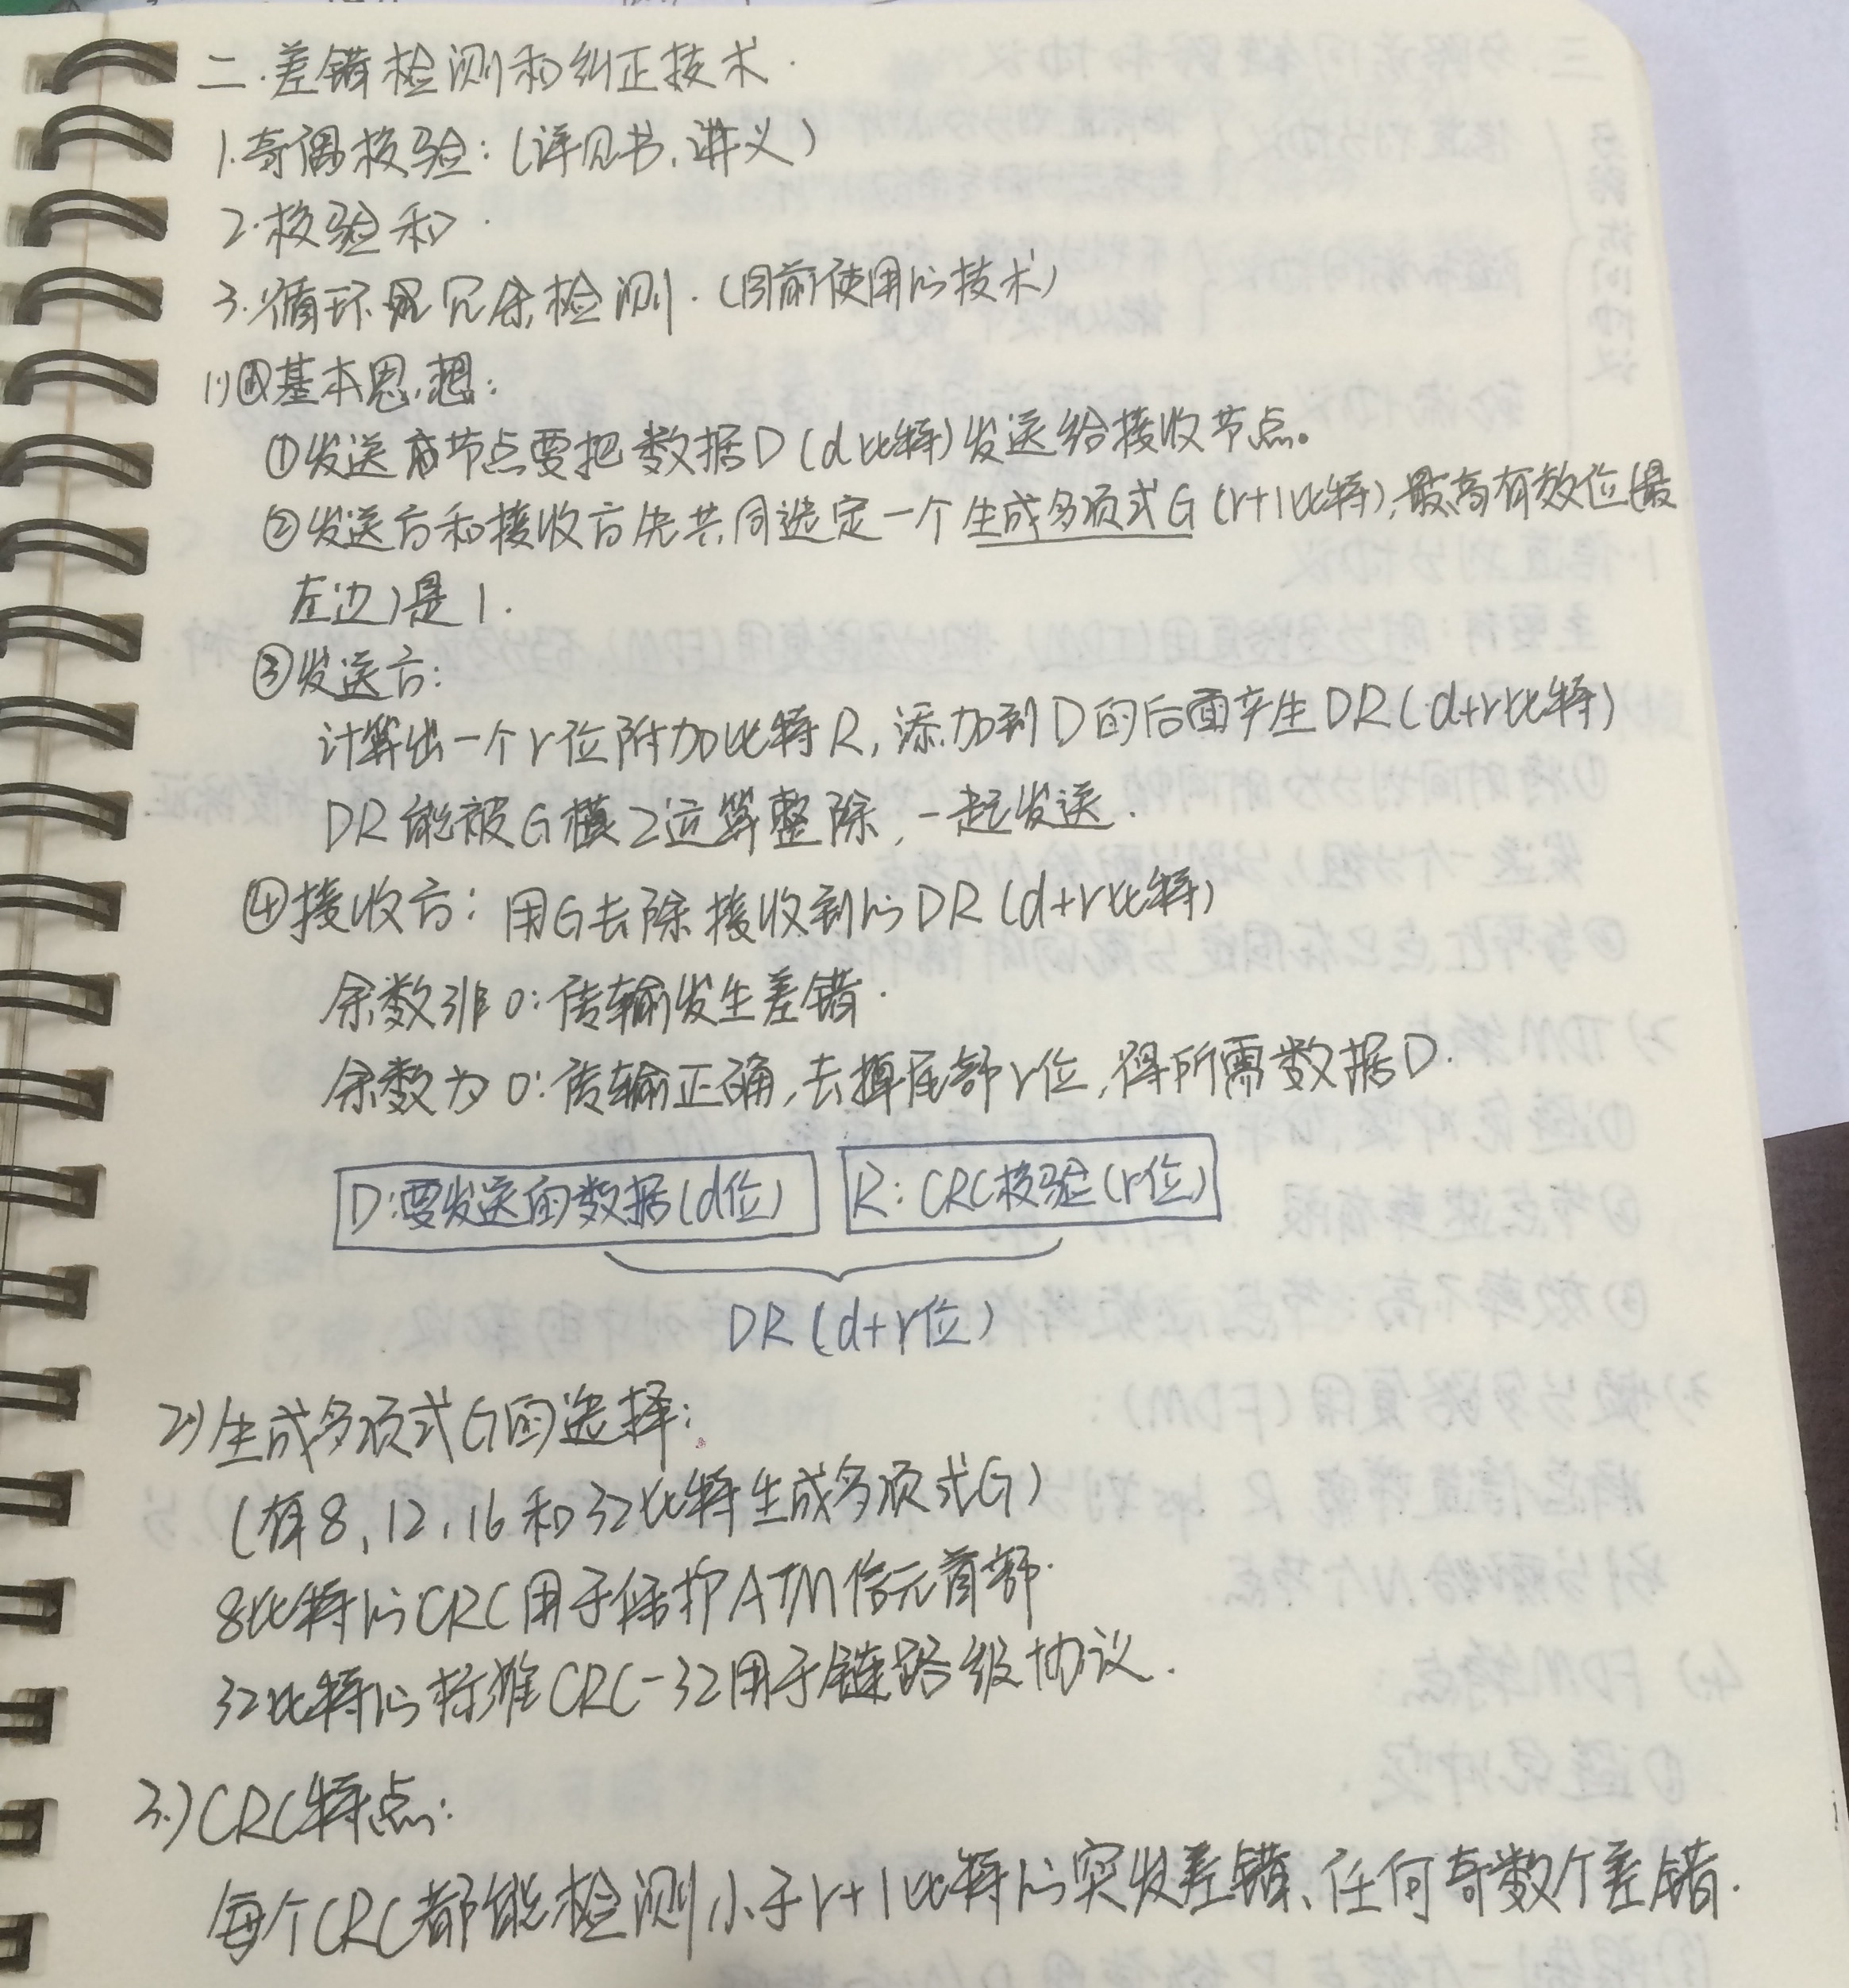 二.差错检测和纠正技术.
1.奇偶校验:(详见书、讲义)
2.校验和.
3.循环冗余检测.(目前使用的技术)
1)基本思想:
①发送节点要把数据D(d比特)发送给接收节点。
②发送方和接收方先共同选定一个生成多项式G(r+1比特),最高有效位(最
左边)是1.
③发送方:
计算出一个r位附加比特R,添加到D的后面产生DR(d+r比特)
DR能被G模2运算整除,一起发送.
④接收方:用G去除接收到的DR(d+r比特)
余数非0:传输发生差错.
余数为0:传输正确,去掉尾部r位,得所需数据D.
D:要发送的数据(d位) R:CRC校验(r位)
DR(d+r位)
2)生成多项式G的选择:
(有8、12、16和32比特生成多项式G)
8比特的CRC用于保护ATM信元首部.
32比特的标准CRC-32用于链路级协议.
3.)CRC特点:
每个CRC都能检测小于r+1比特的突发差错、任何奇数个差错.